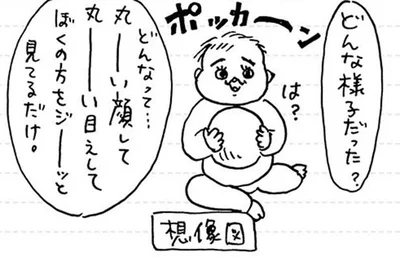 どんな様子だった？
ポッカーン
は？
どんなって…
丸ーーい顔して
丸ーーい目えして
ぼくの方をジーーッと
見てるだけ。
想像図